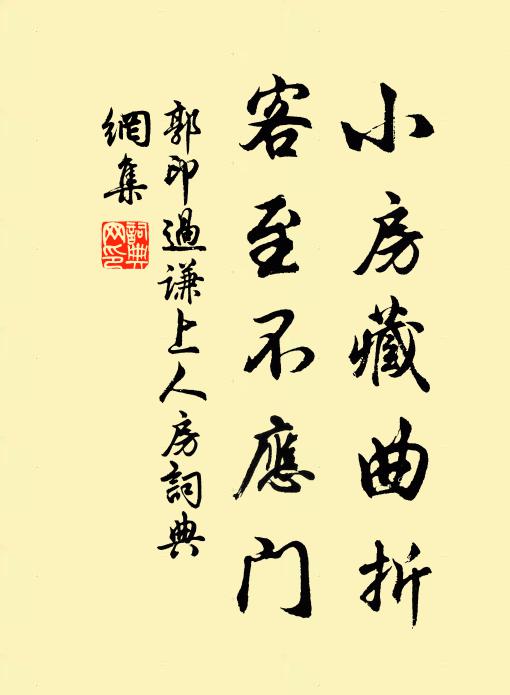 小房藏曲折
客至不應门
郭印過謙上人房詞典
網集
詞典
网印